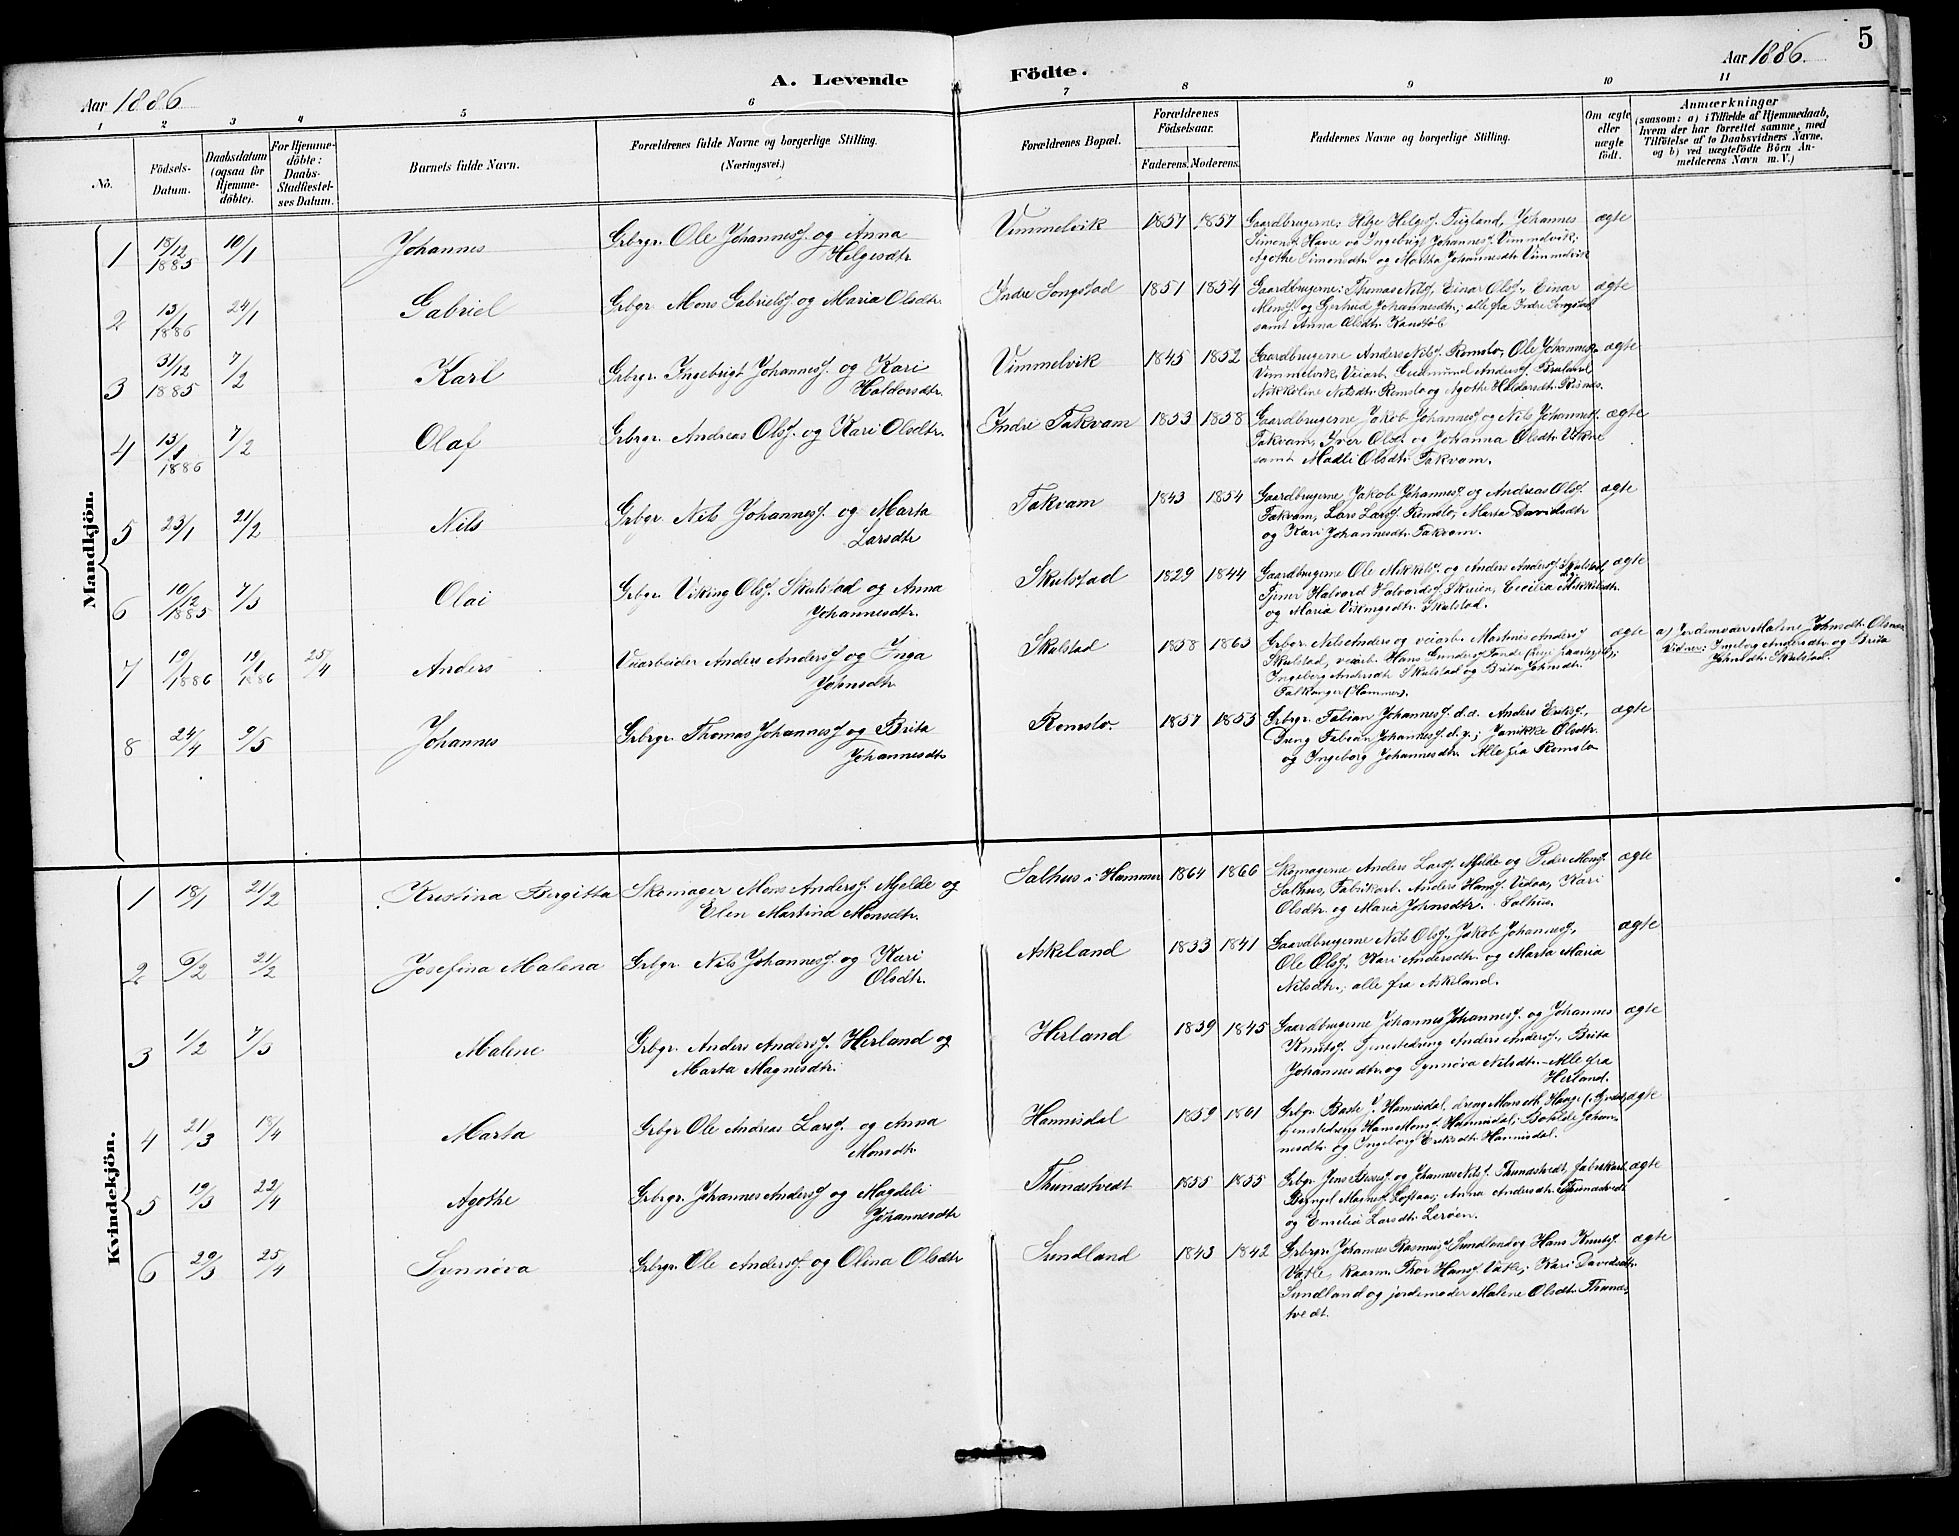 5
Aar 1886
A. Levende Födte.
Aar 1886
1 2 3 4 5 6 7 8 9 10 11
No.
Födsels-Datum.
Daabsdatum (ogsaa for Hjemmedöbte).
For Hjemmedöbte: Daabs-Stadfæstelses Datum.
Barnets fulde Navn.
Forældrenes fulde Navne og borgerlige Stilling.
(Næringsvei.)
Forældrenes Bopæl.
Forældrenes Födselsaar.
Faderens. Moderens.
Faddernes Navne og borgerlige Stilling.
Om ægte eller uægte födt.
Anmærkninger
(saasom: a) i Tilfælde af Hjemmedaab, hvem der har forrettet samme, med Tilföielse af to Daabsvidners Navne, og b) ved uægtefödte Börn Anmelderens Navn m. V.)
Mandkjön.
1 18/12 1885 10/1 Johannes Grbgr. Ole Johannesf. og Anna Helgesdtr Vimmelvik 1857 1857 Gaardbrugerne: Helge Helgesf. Teigland, Johannes
Simonsf. Havre og Ingebrigt Johannesf. Vimmelvik;
Agothe Simonsdtr og Martha Johannesdtr Vimmelvik ægte
2 13/1 1886 24/1 Gabriel Grbgr. Mons Gabrielsf og Maria Olsdtr. Indre Songstad 1851 1854 Gaardbrugerne: Thomas Nilsf, Einar Olsf., Einar
Monsf. og Gjertrud Johannesdtr; alle fra Indre Songstad
samt Anna Olsdtr. ægte
3 31/12 1885 7/2 Karl Grbgr. Ingebrigt Johannesf. og Kari Haldorsdtr. Vimmelvik 1845 1852 Gaardbrugerne Anders Nilsf. Romslo, Ole Johannesf.
Vimmelvik, Veiarb. Gudmund Andersf.
Nikkoline Nilsdtr. Romslo og Agothe Haldorsdtr. Risnes. ægte
4 13/1 1886 7/2 Olaf Grbgr. Andreas Olsf. og Kari Olsdtr. Indre Takvam 1853 1858 Gaardbrugerne Jakob Johannesf og Nils Johannesf.
Takvam, Iver Olsf. og Johanna Olsdtr.
samt Madli Olsdtr. Takvam. ægte
5 23/1 21/2 Nils Grbgr. Nils Johannesf. og Marta Larsdtr Takvam 1843 1854 Gaardbrugerne Jakob Johannesf og Andreas Olsf.
Takvam, Lars Larsf. Romslo; Marta Davidsdtr
og Kari Johannesdtr Takvam. ægte
6 10/12 1885 7/3 Olai Grbgr. Viking Olsf. Skulstad og Anna Johannesdtr Skulstad 1829 1844 Gaardbrugerne Ole Mikkelsf. og Anders Andersf Skulstad,
Tjener Halvord Halvordsf. Skreien, Cecilia Mikkelsdtr.
og Maria Vikingsdtr. Skulstad. ægte
7 19/1 1886 19/1 1886 25/4 Anders Veiarbeider Anders Andersf og Inga Johnsdtr Skulstad 1858 1863 Grbgr. Nils Anders og veiarb. Martinus Andersf
Skulstad, veiarb. Hans Gundersf
Ingeborg Andersdtr Skulstad og Brita Johnsdtr.
Falkanger (Hammer). ægte a) Jordemoder Malene Johnsdtr.
Vidner: Ingeborg Andersdtr og Brita
Johnsdtr Skulstad.
8 24/4 9/5 Johannes Grbrgr. Thomas Johannesf og Brita Johannesdtr Romslo. 1857 1853 Grbrgr. Fabian Johannesf. d.æ. Anders Eriksf.,
Dreng Fabian Johannesf. d.y.; Janikke Olsdtr.
og Ingeborg Johannesdtr. Alle fra Romslo ægte
Kvindekjön.
1 18/1 21/2 Kristina Bergitta Skomager Mons Andersf. Mjelde og Elen Martina Monsdtr. Salhus i Hammer 1864 1866 Skomagerne Anders Larsf. Mjelde og Peder Monsf.
Salhus, Fabrikarb. Anders Hansf. Vidaa, Kari
Olsdtr. og Maria Johnsdtr. Salhus. ægte
2 6/2 21/2 Josefina Malena Grbgr. Nils Johannesf og Kari Olsdtr. Askeland 1833 1841 Gaardbrugerne Nils Olsf., Jakob Johannesf,
Ole Olsf., Kari Andersdtr. og Marta Maria
Nilsdtr., alle fra Askeland. ægte
3 1/2 7/3 Malene Grbgr. Anders Andersf. Herland og Marta Magnesdtr. Herland 1839 1845 Gaardbrugerne Johannes Johannesf. og Johannes
Knutsf. Tjenestedreng Anders Andersf., Brita
Johannesdtr. og Synnøva Nilsdtr. Alle fra
Herland. ægte
4 21/3 18/4 Marta Grbgr Ole Andreas Larsf. og Anna Monsdtr Hannisdal 1859 1861 Grbgr. Hannisdal, dreng Mons
Hans Monsf. Hannisdal; Botilde Johannesdtr
og Ingeborg Eriksdtr Hannisdal. ægte
5 19/3 22/4 Agothe Grbrgr. Johannes Andersf og Magdeli Johannesdtr Thunestvedt 1855 1855 Grbgr. Jens og Johannes Nilsf. Thunestvedt, fabrikarb.
Magnesf. Loftaas; Anna Andersdtr. Thunestvedt
og Emilia Larsdtr. Lerøen. ægte
6 29/3 25/4 Synnøva Grbrgr. Ole Andersf. og Olina Olsdtr Sundland 1843 1842 Grbrgr. Johannes Rasmusf. Sundland og Hans Knutsf.
Vatle, kaarm. Thor Hansf. Vatle; Kari Davidsdtr.
Sundland og jordemoder Malene Olsdtr. Thunes-
tvedt. ægte